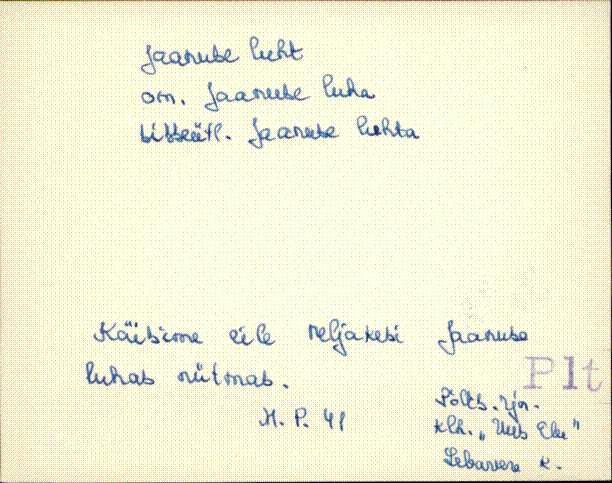 Jaanuse luht
om. Jaanuse luha
sisseütl. Jaanuse luhta
Käisime eile neljakesi Jaanuse
luhas niitmas.
Plt
H. P. 41
Põlts. rjn.
klh. „Uus Elu"
Lebavere k.